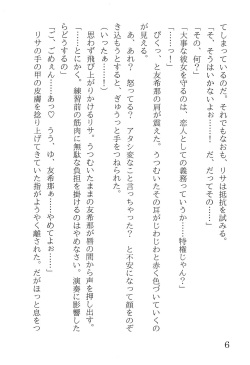 てしまっているのだ。それでもなお、リサは抵抗を試みる。
「そ、そうはいかないよぉ……。だ、だってその……」
「その、何？」
「大事な彼女を守るのは、恋人としての義務っていうか……特権じゃん？」
「……っ！」
びくっ、と友希那の肩が震えた。うつむいたその耳がじわじわと赤く色づいていくの
が見える。
あ、あれ？　怒ってる？　アタシ変なこと言っちゃった？　と不安になって顔をのぞ
き込もうとすると、ぎゅうっと手をつねられた。
（いったぁ……！）
思わず飛び上がりかけるリサ。うつむいたままの友希那が唇の間から声を押し出す。
「……とにかく。練習前の筋肉に無駄な負担を掛けるのはやめなさい。演奏に影響した
らどうするの」
「ご、ごめぇん……あっ♡　うう、ゆ、友希那ぁ……やめてよぉ……」
リサの手の甲の皮膚を捻り上げてきていた指がようやく離された。だがほっと息をつ
6